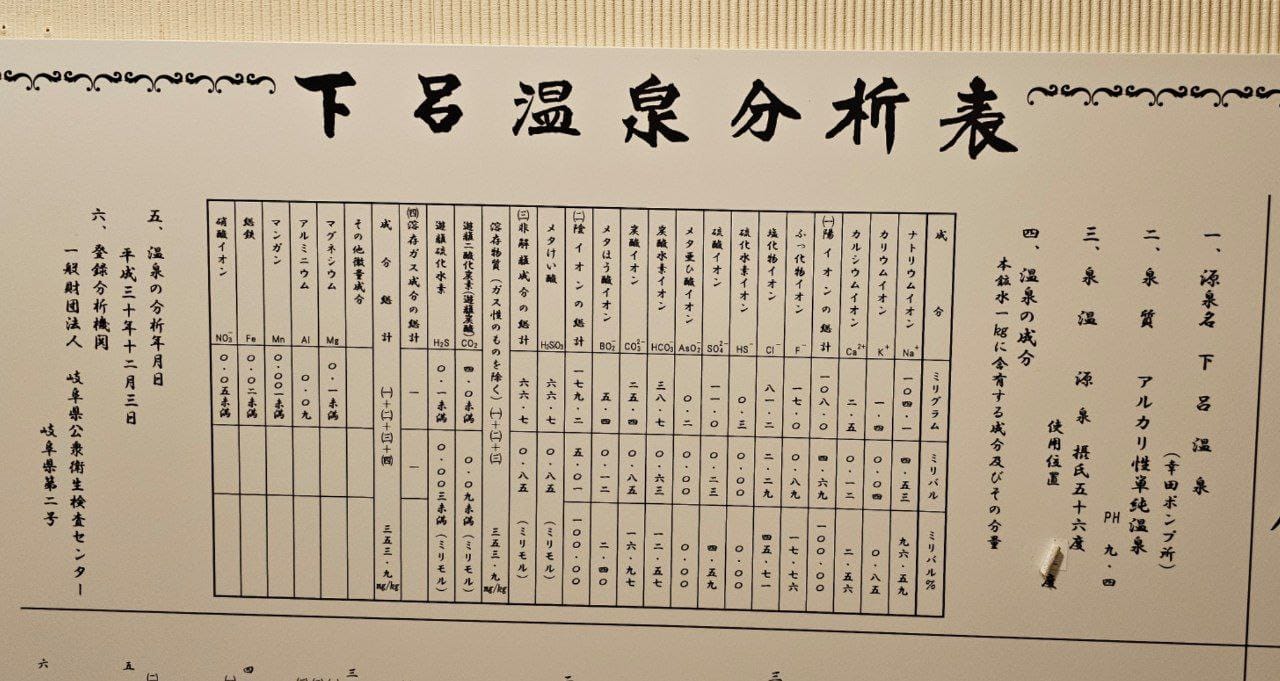 下呂温泉分析表
一、源泉名 下呂温泉
(幸田ポンプ所)
二、泉質 アルカリ性単純温泉
PH 九・四
三、泉温 源泉 摂氏五十六度
使用位置 度
四、温泉の成分
本鉱水一kgに含有する成分及びその分量
成分 ミリグラム ミリバル ミリバル%
ナトリウムイオン Na⁺ 一〇四・一 四・五三 九六・五九
カリウムイオン K⁺ 一・四 〇・〇四 〇・八五
カルシウムイオン Ca²⁺ 二・五 〇・一二 二・五六
㈠陽イオンの総計 一〇八・〇 四・六九 一〇〇・〇〇
ふっ化物イオン F⁻ 一七・〇 〇・八九 一七・七六
塩化物イオン Cl⁻ 八一・二 二・二九 四五・七一
硫化水素イオン HS⁻ 〇・三 〇・〇〇 〇・〇〇
硫酸イオン SO₄⁻ 一一・〇 〇・二三 四・五九
メタ亜ひ酸イオン AsO₂⁻ 〇・二 〇・〇〇 〇・〇〇
炭酸水素イオン HCO₃⁻ 三八・七 〇・六三 一二・五七
炭酸イオン CO₃²⁻ 二五・四 〇・八五 一六・九七
メタほう酸イオン BO₂⁻ 五・四 〇・一二 二・四〇
㈡陰イオンの総計 一七九・二 五・〇一 一〇〇・〇〇
メタけい酸 H₂SO₃ 六六・七 〇・八五 (ミリモル)
㈢非解離成分の総計 六六・七 〇・八五 (ミリモル)
溶存物質(ガス性のものを除く) ㈠+㈡+㈢ 三五三・九mg/kg
遊離二酸化炭素(遊離炭酸) CO₂ 四・〇未満 〇・〇九未満(ミリモル)
遊離硫化水素 H₂S 〇・一未満 〇・〇〇三未満(ミリモル)
㈣溶存ガス成分の総計 ー ー
成分総計 ㈠+㈡+㈢+㈣ 三五三・九mg/kg
その他微量成分
マグネシウム Mg 〇・一未満
アルミニウム Al 〇・〇九
マンガン Mn 〇・〇〇一未満
総鉄 Fe 〇・〇二未満
硝酸イオン NO₃⁻ 〇・〇五未満
五、温泉の分析年月日
平成三十年十二月三日
六、登録分析機関
一般財団法人 岐阜県公衆衛生検査センター
岐阜県第二号
三
二
三
四
五
六